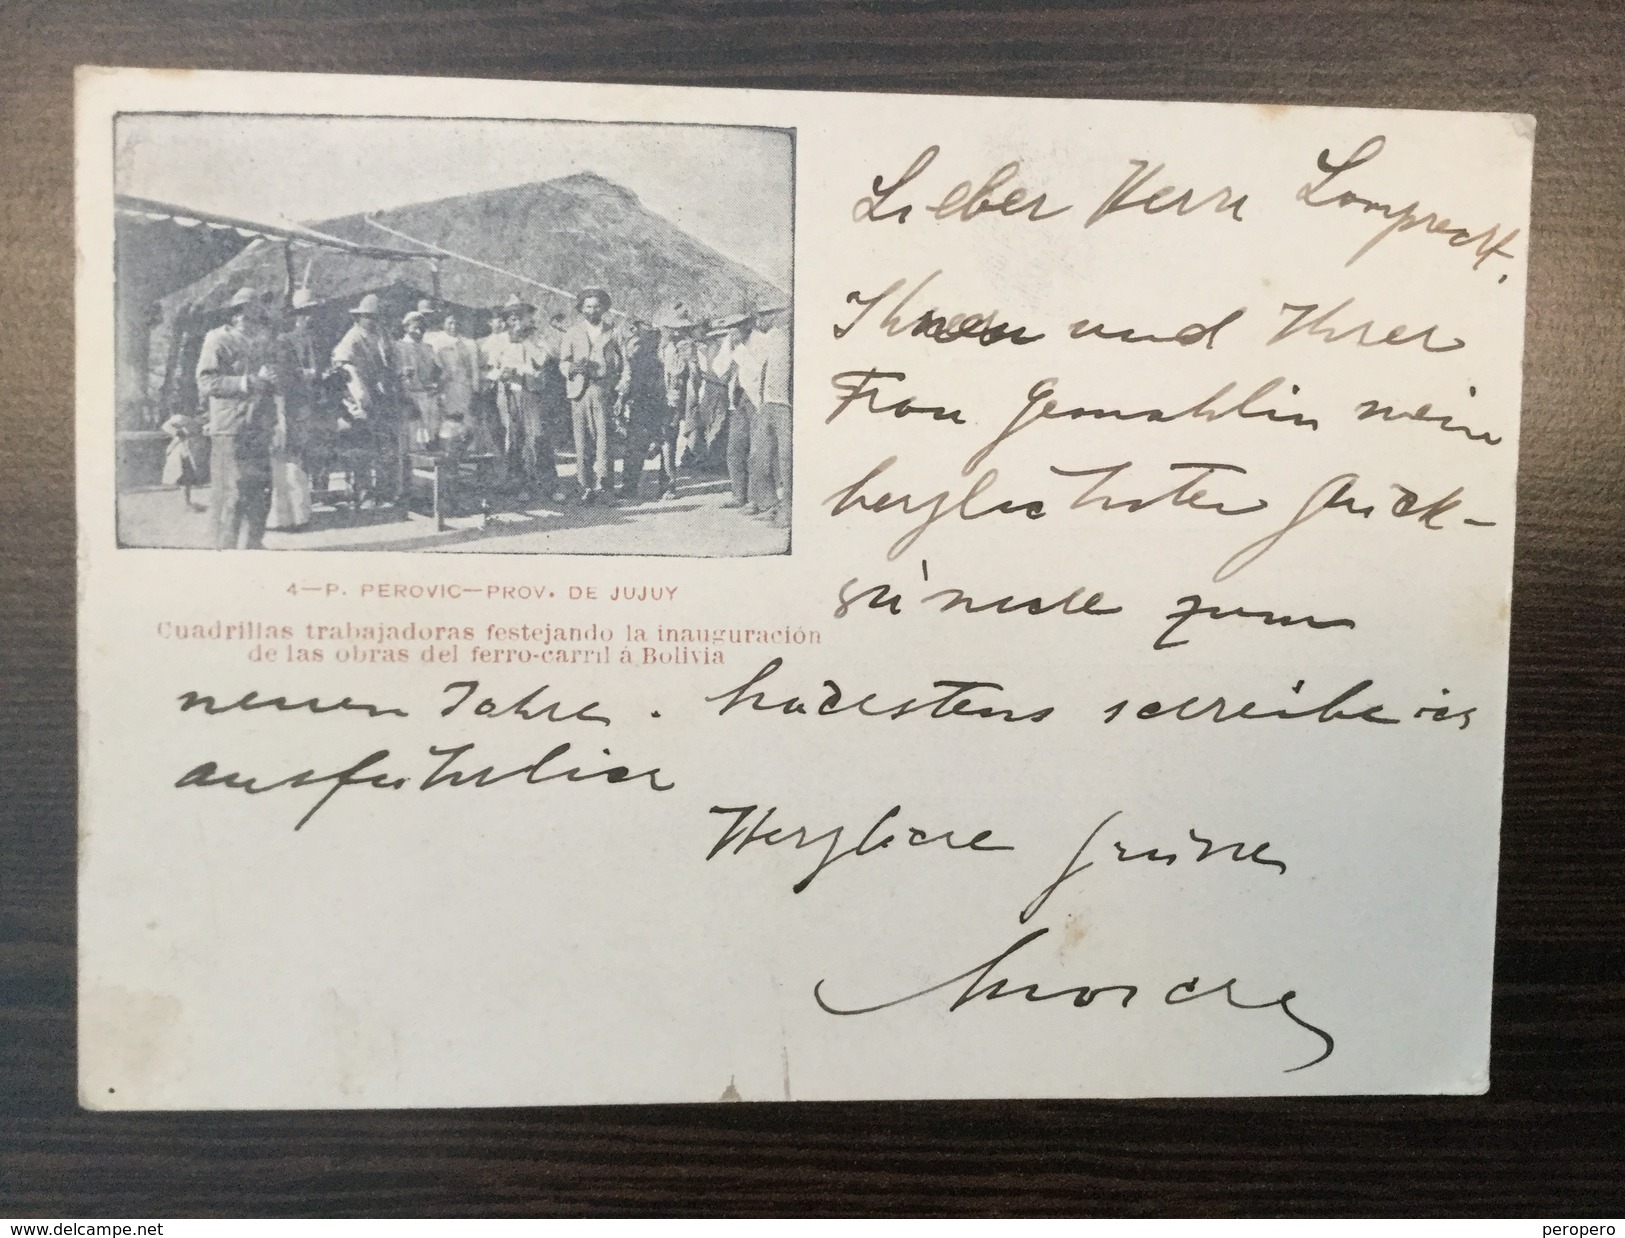 4—P. PEROVIC—PROV. DE JUJUY
Cuadrillas trabajadoras festejando la inauguración
de las obras del ferro-carril á Bolivia
Lieber Herr Lamprecht,
Ihnen und Ihrer
Frau Gemahlin meine
herzlichsten Glück-
wünsche zum
neuen Jahre. Nächstens schreibe ich
ausführlich
Herzliche Grüsse
www.delcampe.net
peropero